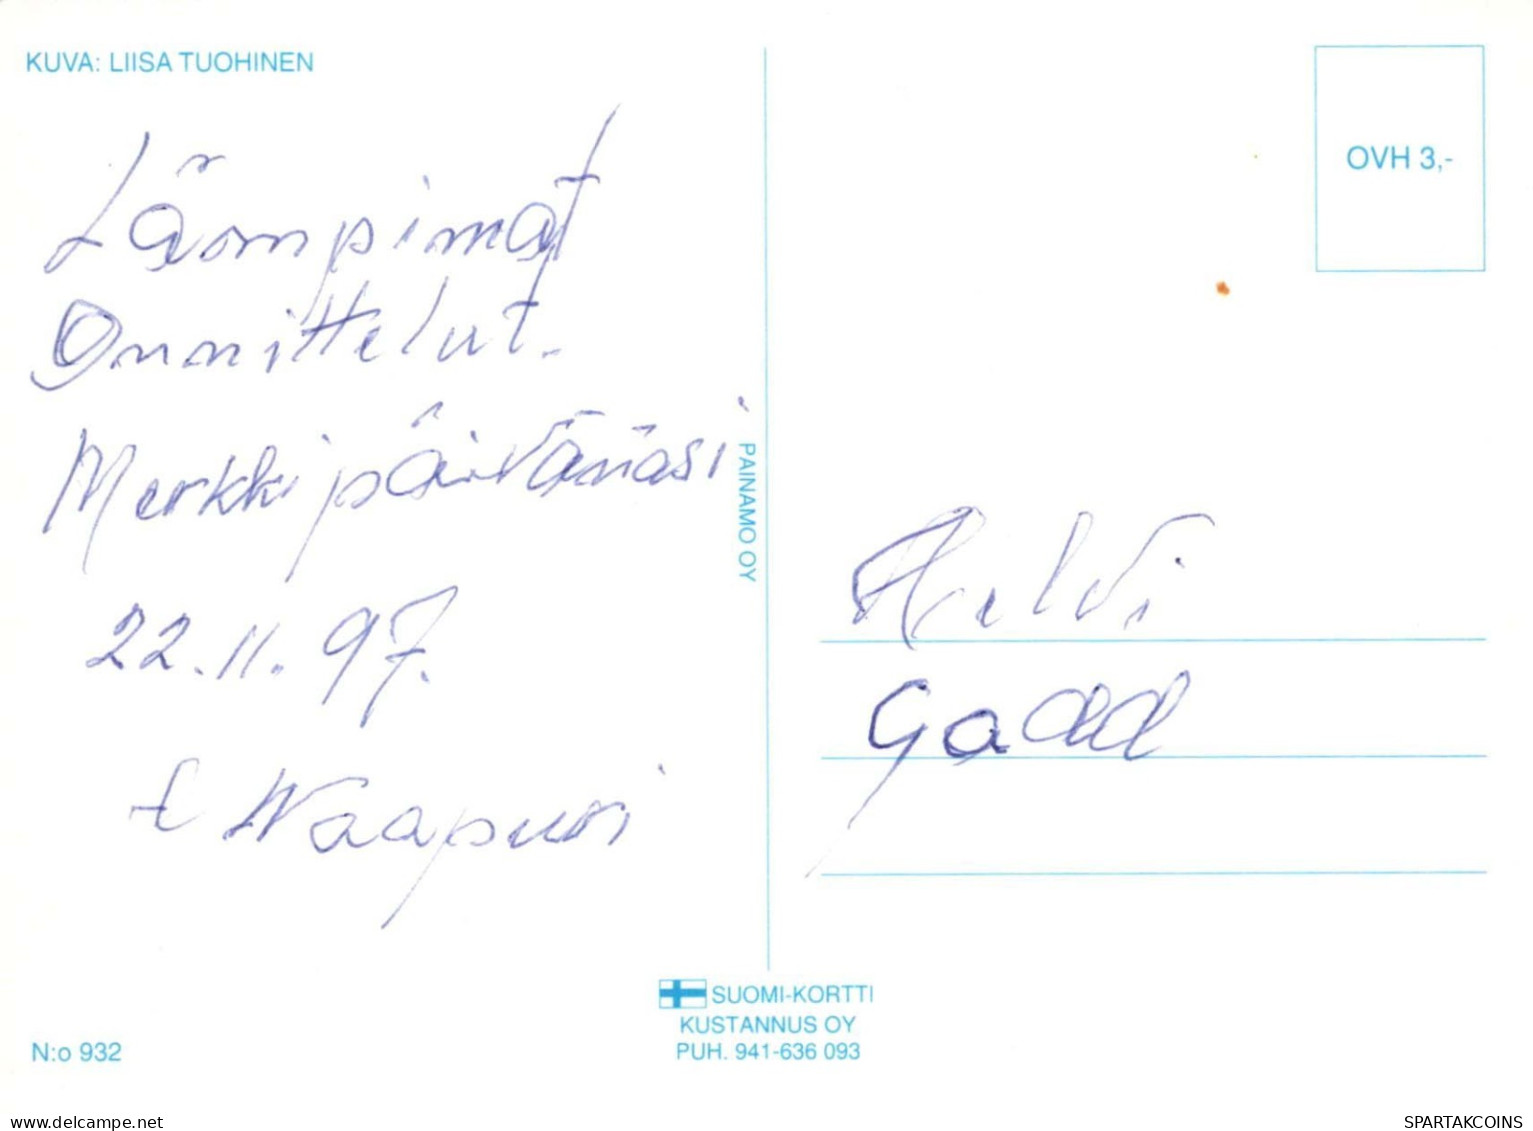 KUVA: LIISA TUOHINEN
Lämpimät
Onnittelut.
Merkkipäivänäsi
22.11.97.
t Naapuri
PAINAMO OY
OVH 3,-
Helvi
Gadd
SUOMI-KORTTI
KUSTANNUS OY
PUH. 941-636 093
N:o 932
delcampe.net
SPARTAKCOINS